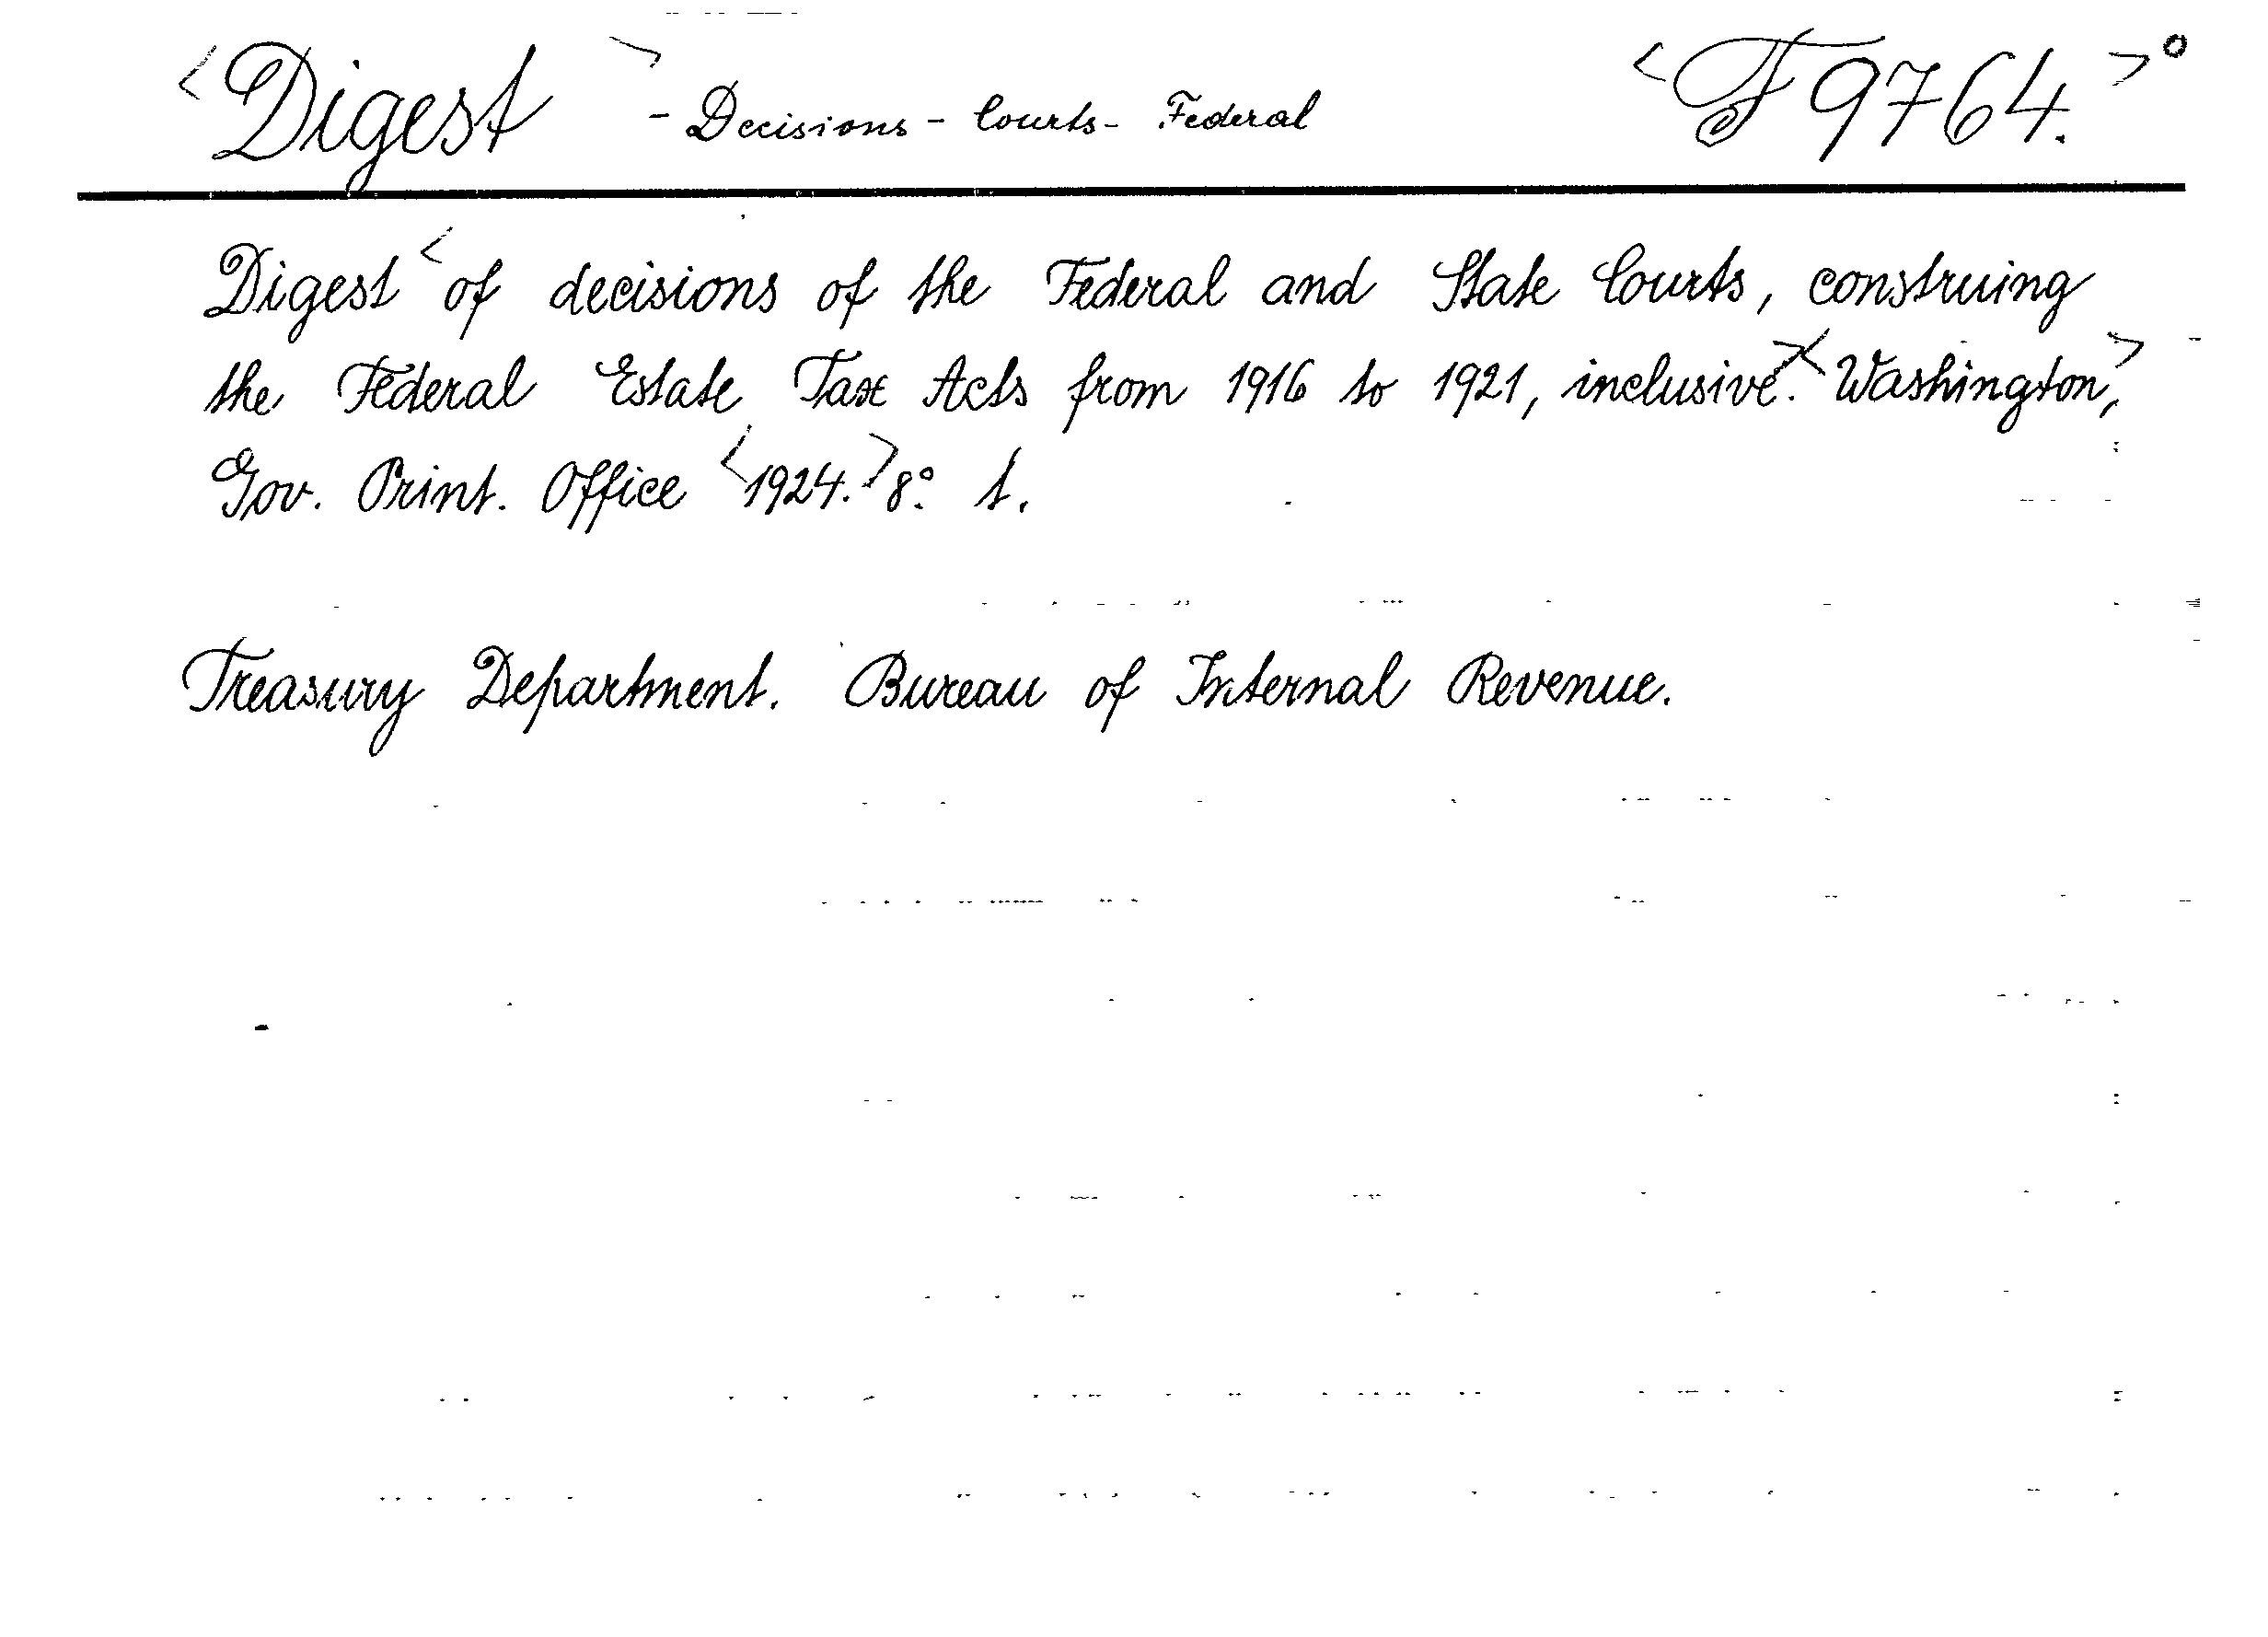 <Digest> - Decisions - Courts - Federal <F 9764.>°
Digest <of decisions of the Federal and State Courts, construing
the Federal Estate Tax Acts from 1916 to 1921, inclusive.> <Washington,>
Gov. Print. Office <1924.> 8° t.
Treasury Department. Bureau of Internal Revenue.